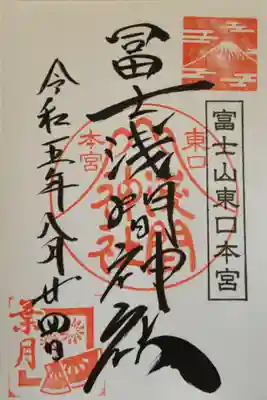 富士山東口本宮
冨士浅間神社
東口
本宮
令和五年八月廿四日
葉月